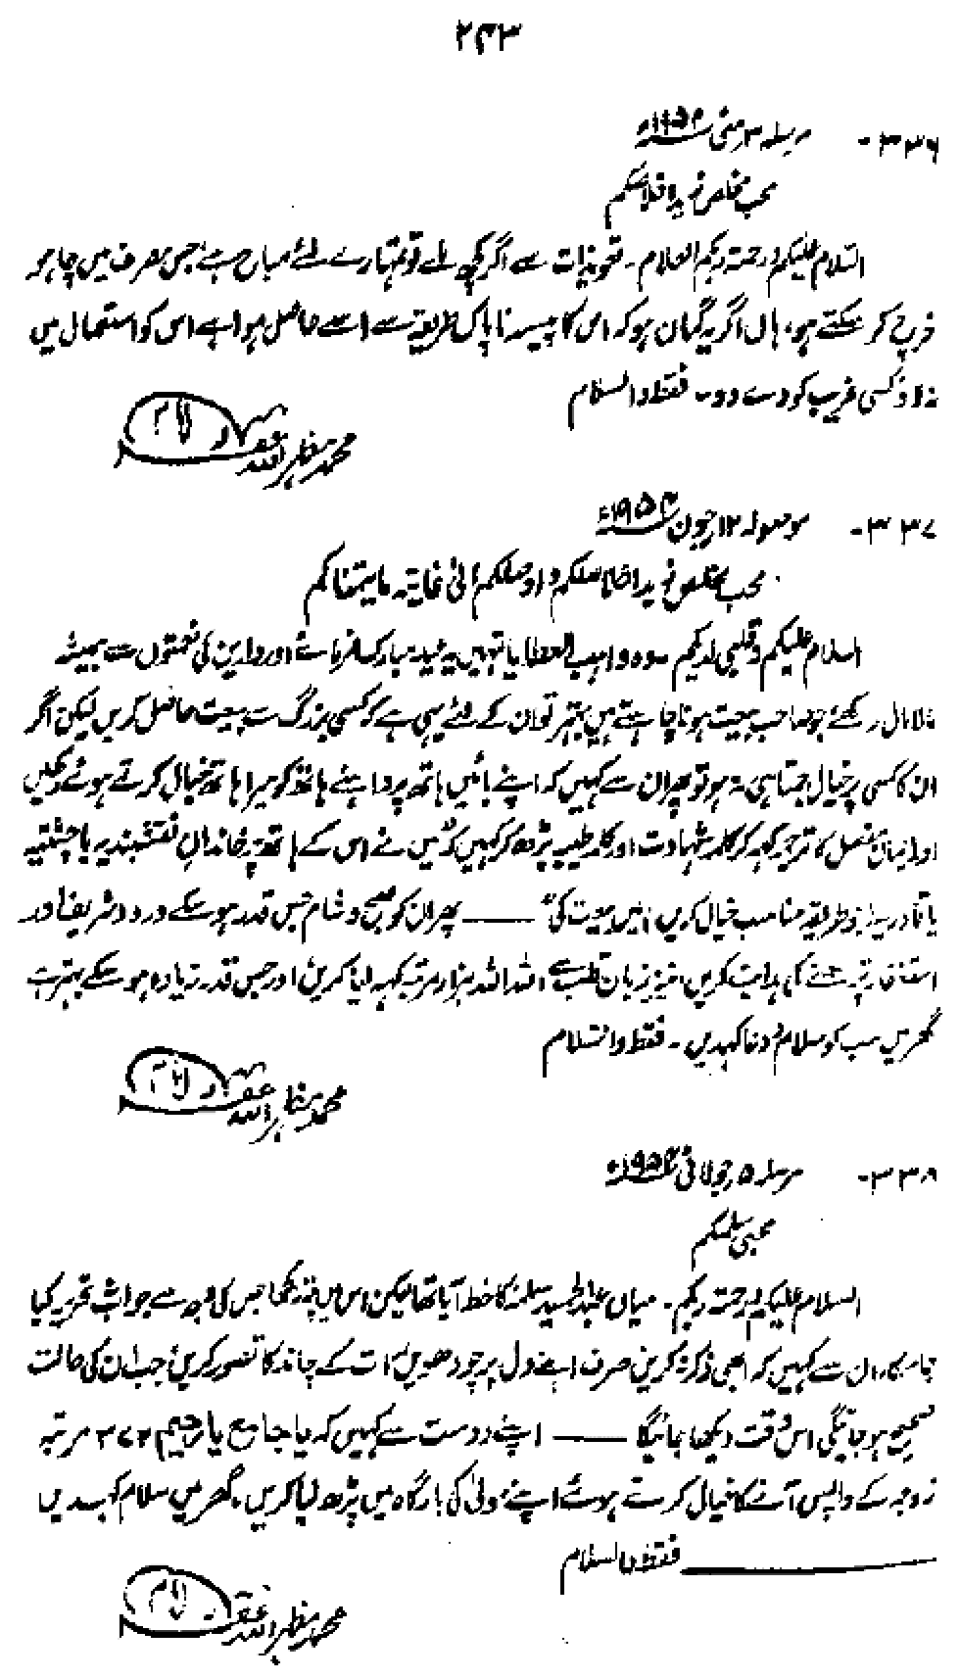 ۲۴۳
۳۳۶- مرسلہ ۳ مئی ۱۹۵۴ء
محب مخلص زید اخلاصکم
السلام علیکم ورحمۃ ربکم العلام۔ تعویذات سے اگر کچھ ملے تو تمہارے لئے مباح ہے، جس مصرف میں چاہو
خرچ کر سکتے ہو، ہاں اگر یہ گمان ہو کہ اس کا پیسہ ناپاک طریقہ سے اسے حاصل ہوا ہے اس کو استعمال میں
نہ لاؤ کسی غریب کو دے دو۔ فقط والسلام
محمد مظہر اللہ غفرلہ
۳۳۷- موصولہ ۱۲ جون ۱۹۵۴ء
محب مخلص زید اخلاصکم واوصلکم الیٰ غایۃ مایتمناکم
السلام علیکم وقلبی لدیکم۔ وہ واہب العطایا تمہیں یہ عید مبارک فرمائے اور دارین کی نعمتوں سے ہمیشہ
مالامال رکھے جو صاحب بیعت ہونا چاہتے ہیں بہتر تو ان کے لئے یہی ہے کہ کسی بزرگ سے بیعت حاصل کریں لیکن اگر
ان کا کسی پر خیال جمتا ہی نہ ہو تو پھر ان سے کہیں کہ اپنے بائیں ہاتھ پر داہنے ہاتھ کو میرا ہاتھ خیال کرتے ہوئے رکھیں
اور ایمان مفصل کا ترجمہ کہہ کر کلمہ شہادت اور کلمہ طیبہ پڑھ کر کہیں کہ "میں نے اس کے ہاتھ پر خاندان نقشبندیہ یا چشتیہ
یا قادریہ (جو طریقہ مناسب خیال کریں) میں بیعت کی" ——— پھر ان کو صبح و شام جس قدر ہو سکے درود شریف اور
استغفار پڑھنے کی ہدایت کریں، نیز زبان قلب سے اللہ اللہ ہزار مرتبہ کہہ لیا کریں اور جس قدر زیادہ ہو سکے بہتر ہے
گھر میں سب کو سلام و دعا کہدیں۔ فقط والسلام
محمد مظہر اللہ غفرلہ
۳۳۸- مرسلہ ۵ جولائی ۱۹۵۴ء
محبی سلمکم
السلام علیکم ورحمۃ ربکم۔ میاں سلمہٗ کا خط آیا تھا لیکن اس میں پتہ نہ تھا جس کی وجہ سے جواب نہ تحریر کیا
جا سکا، ان سے کہیں کہ ابھی ذکر نہ کریں صرف اپنے دل پر چودھویں رات کے چاند کا تصور کریں، جب ان کی حالت
صحیح ہو جائیگی اس وقت دیکھا جائیگا ——— اپنے دوست سے کہیں کہ یا جامع یا رحیم ۳۷۲ مرتبہ
زوجہ کے واپس آنے کا خیال کرتے ہوئے اپنے مولیٰ کی بارگاہ میں پڑھ لیا کریں۔ گھر میں سلام کہدیں
فقط والسلام
محمد مظہر اللہ غفرلہ